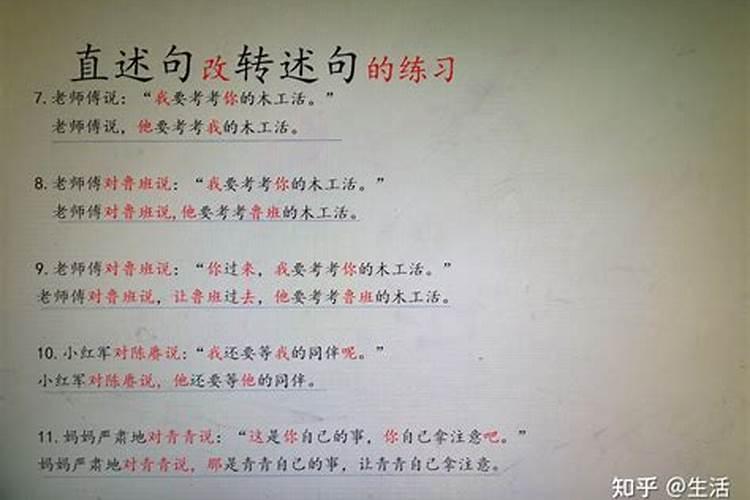 直述句改转述句的练习
7.老师傅说：“我要考考你的木工活。”
老师傅说，他要考考我的木工活。
8.老师傅对鲁班说：“我要考考你的木工活。”
老师傅对鲁班说,他要考考鲁班的木工活。
9.老师傅对鲁班说：“你过来，我要考考你的木工活。”
老师傅对鲁班说，让鲁班过去，他要考考鲁班的木工活。
10.小红军对陈赓说：“我还要等我的同伴呢。”
小红军对陈赓说，他还要等他的同伴。
11.妈妈严肃地对青青说：“这是你自己的事，你自己拿注意吧。”
妈妈严肃地对青青说，那是青青自己的事，让青青自己拿注意。
知乎 @生活